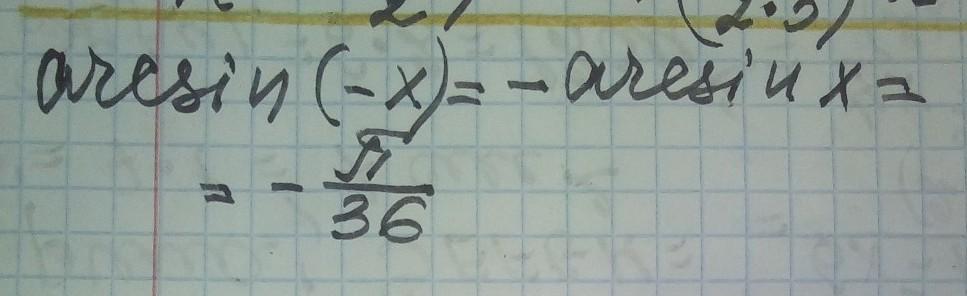 arcsin (-x) = - arcsin x =
= - π/36